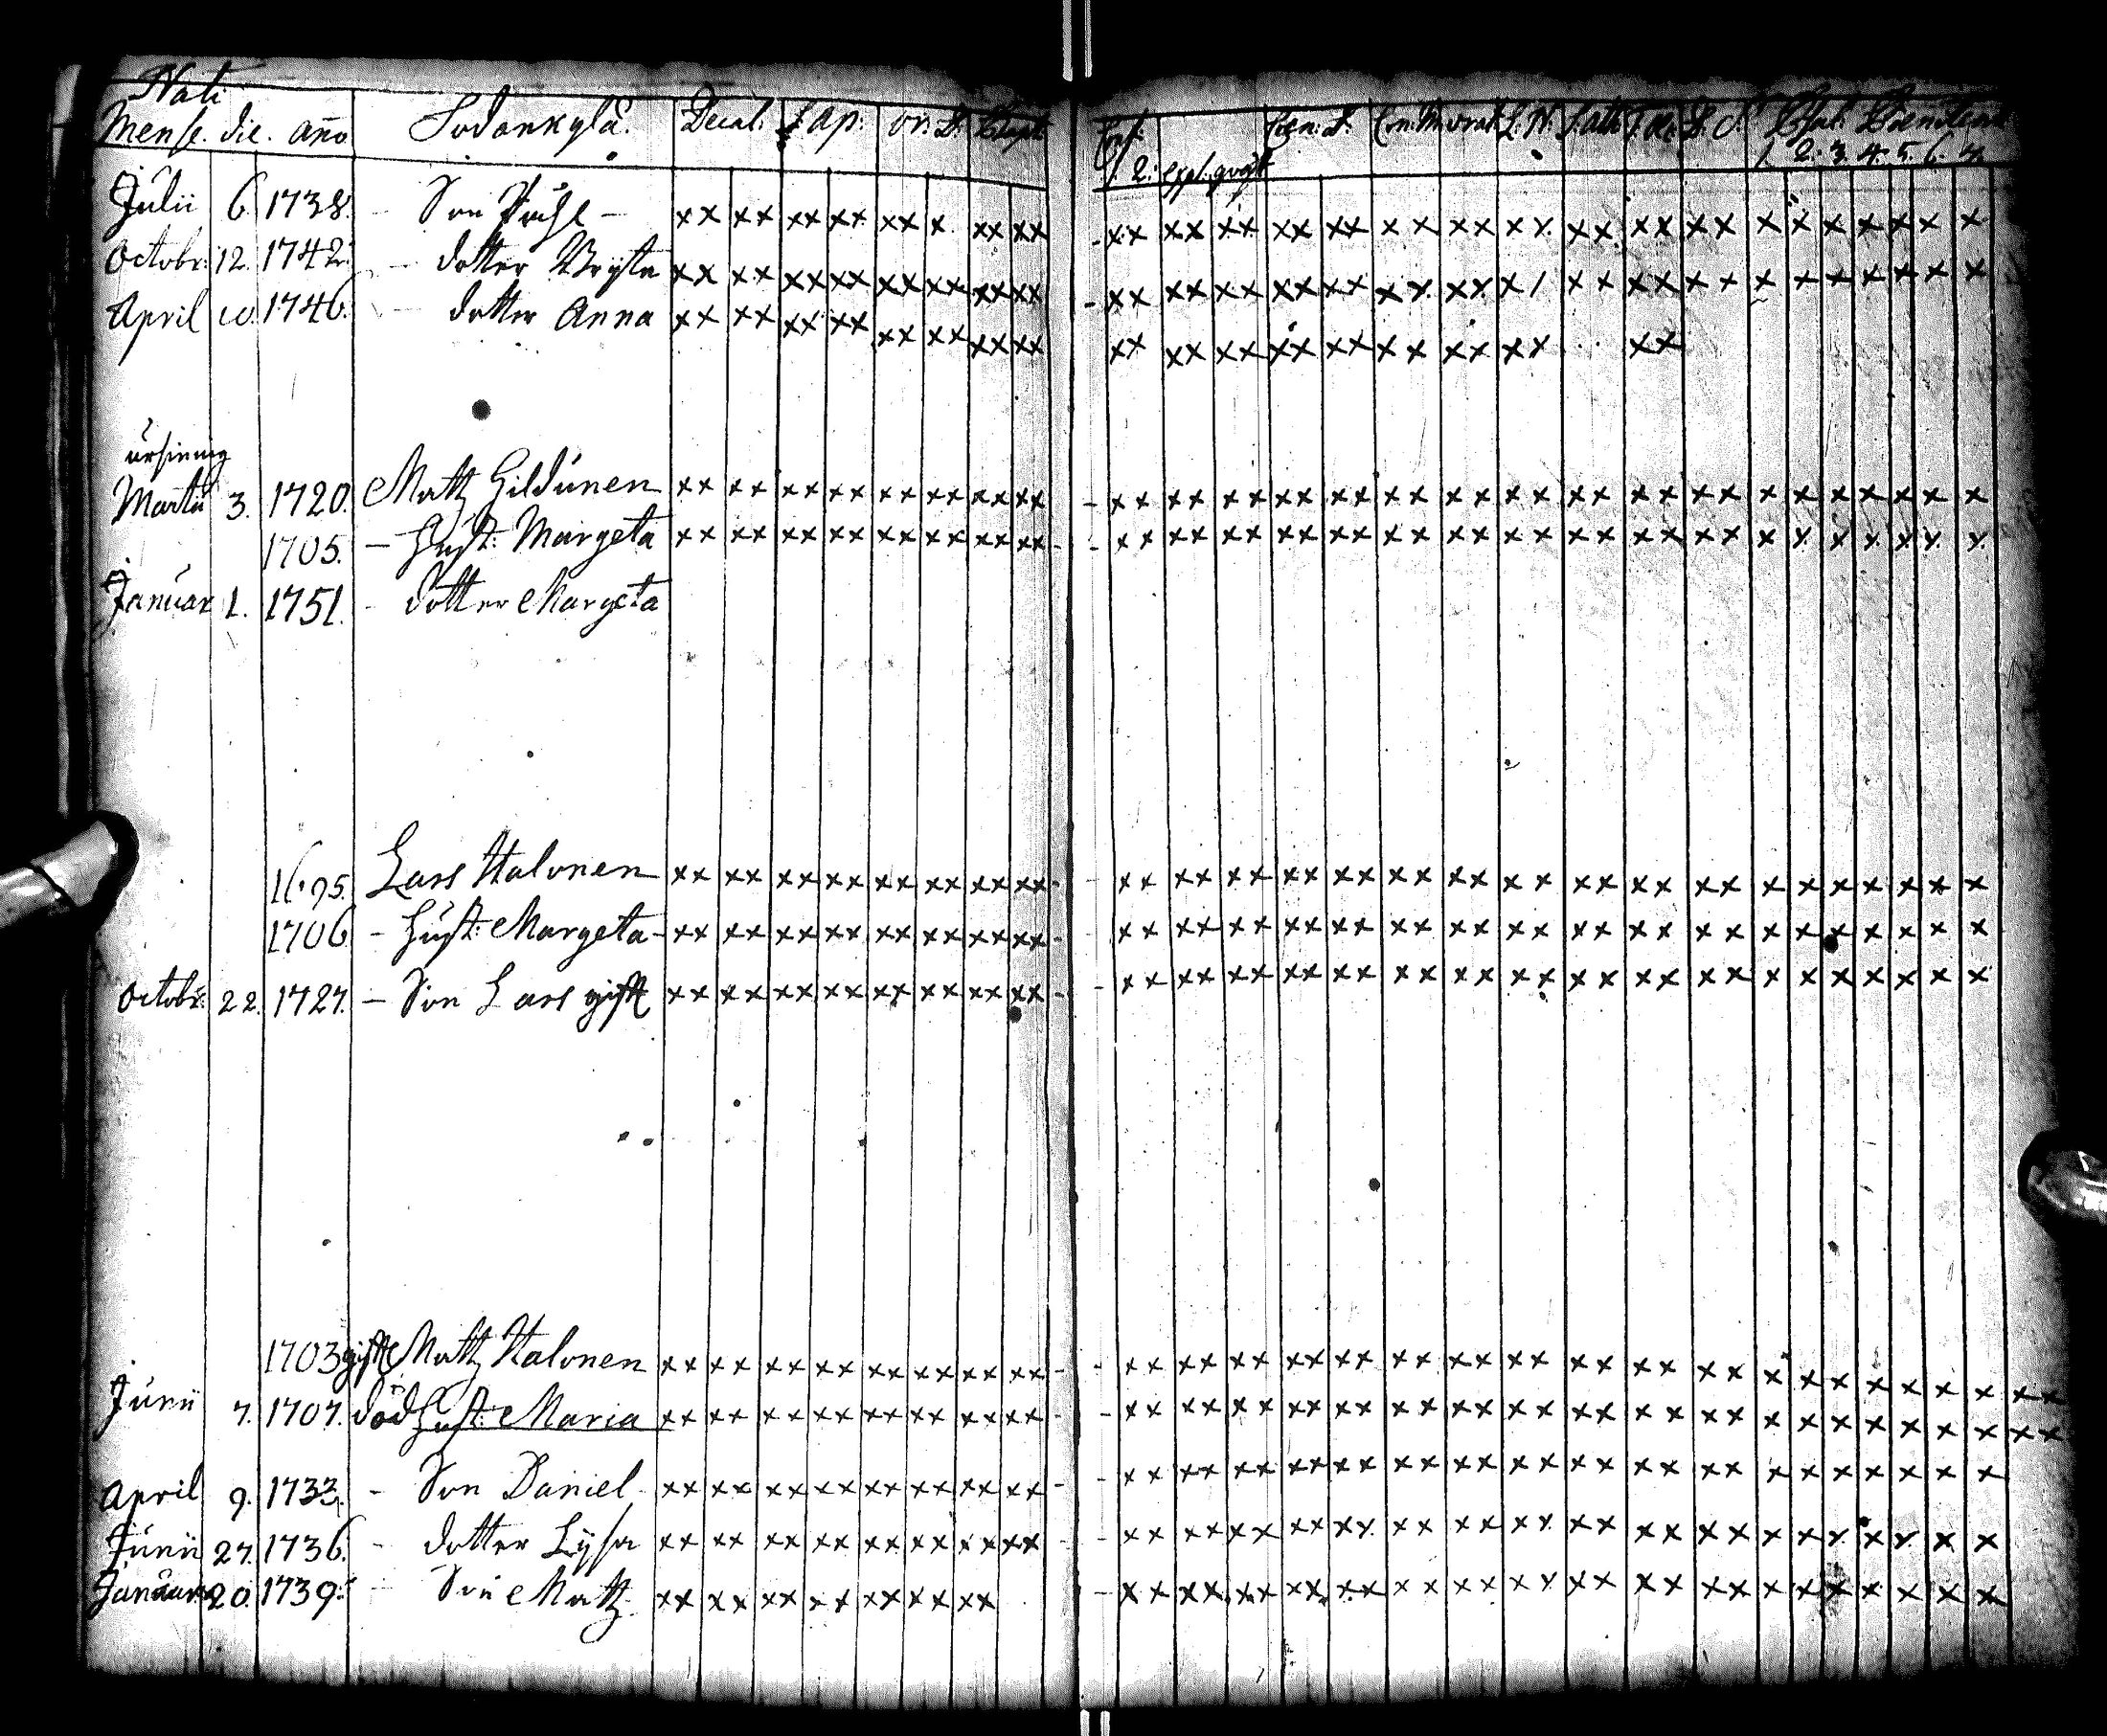 Nati
Mense. die. año Sodankylä. Decal: S. ap: or. D. Bapt:
Conf: Coen. D. L. N. S. ath T. Q. S. Psal: Poenitent
1. 2. expl. 1. 2. 3. 4. 5. 6. 7.
Julii 6. 1738. - Son xx xx xx xx xx x. xx xx - xx xx xx xx xx x x xx xx xx. xx xx x x x x x x x
Octobr: 12. 1742. - dotter Bryta xx xx xx xx xx xx xx xx - xx xx xx xx xx xx. xx x/ xx xx xx x x x x x x x
April 10. 1746. - dotter Anna xx xx xx xx xx xx xx xx xx xx xx xx xx xx xx xx xx
Martii 3. 1720. Matz Hildunen xx xx xx xx xx xx xx xx - xx xx xx xx xx xx xx xx xx xx xx x x x x x x x
1705. - Hust: Margeta xx xx xx xx xx xx xx xx - - xx xx xx xx xx xx xx xx xx xx xx x x x x x x x
Januar 1. 1751. - dotter Margeta
1695. Lars Halonen xx xx xx xx xx xx xx xx - xx xx xx xx xx xx xx xx xx xx xx x x x x x x x
1706 - Hust: Margeta - xx xx xx xx xx xx xx xx - xx xx xx xx xx xx xx xx xx xx xx x x x x x x x
Octobr: 22. 1727. - Son Lars gift xx xx xx xx xx xx xx xx - - xx xx xx xx xx xx xx xx xx xx xx x x x x x x x
1703 gift Matz Halonen xx xx xx xx xx xx xx xx - - xx xx xx xx xx xx xx xx xx xx xx x x x x x x x xx
Junii 7. 1707. död Hust: Maria xx xx xx xx xx xx xx xx - - xx xx xx xx xx xx xx xx xx xx xx x x x x x x x xx
April 9. 1733. - Son Daniel xx xx xx xx xx xx xx xx - - xx xx xx xx xx xx xx xx xx xx xx x x x x x x x
Junii 27. 1736. - dotter Lysa xx xx xx xx xx xx xx xx - xx xx xx xx xx xx xx xx xx xx xx x x x x x x x
Januar 20. 1739. - Son Matz xx xx xx xx xx xx xx - xx xx xx xx xx xx xx xx xx xx xx x x x x x x x